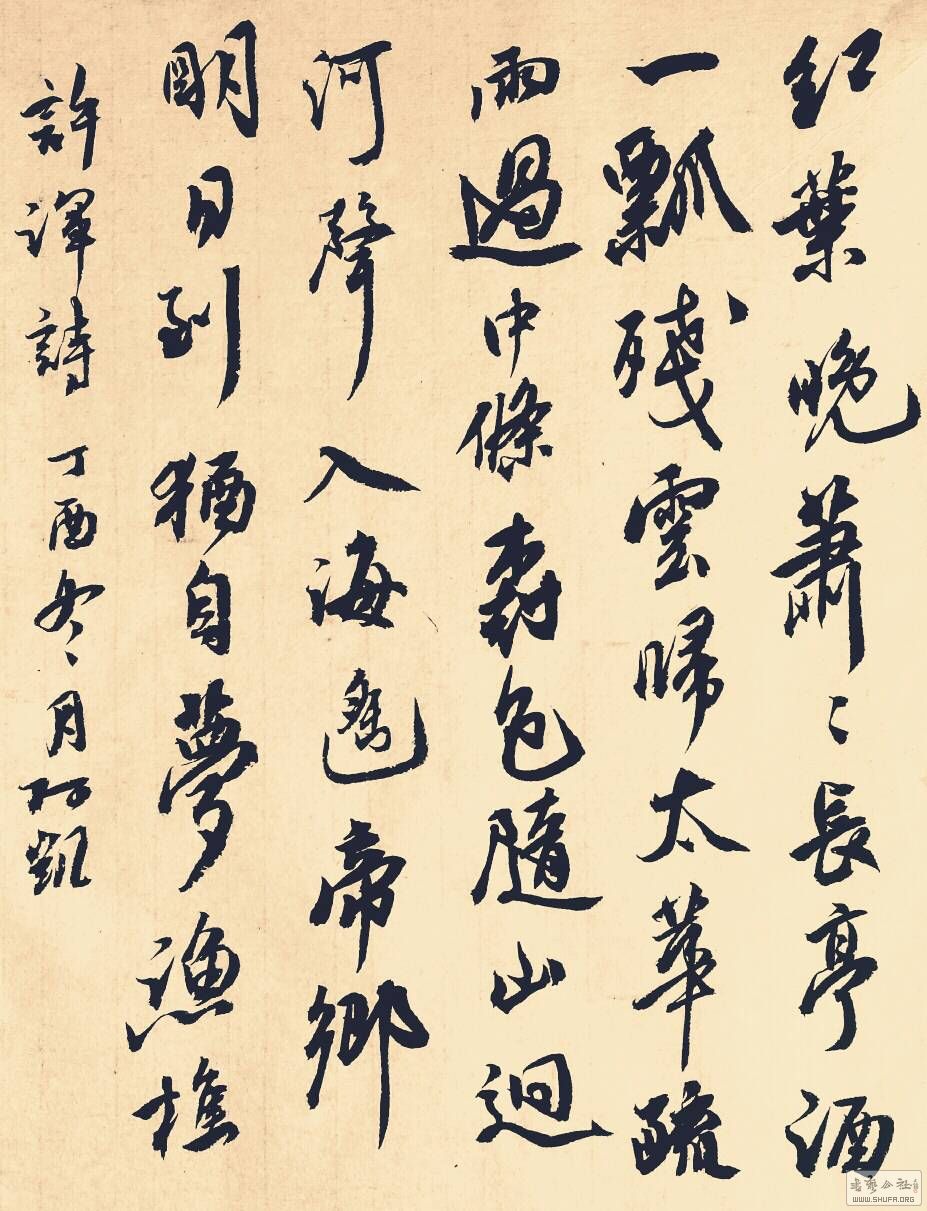 紅葉晚蕭〻長亭酒
一瓢殘雲歸太華疏
雨過中條樹色隨山迥
河聲入海遙帝鄉
明日到猶自夢漁樵
許渾詩 丁酉冬月阿凱
书艺公社
WWW.SHUFA.ORG